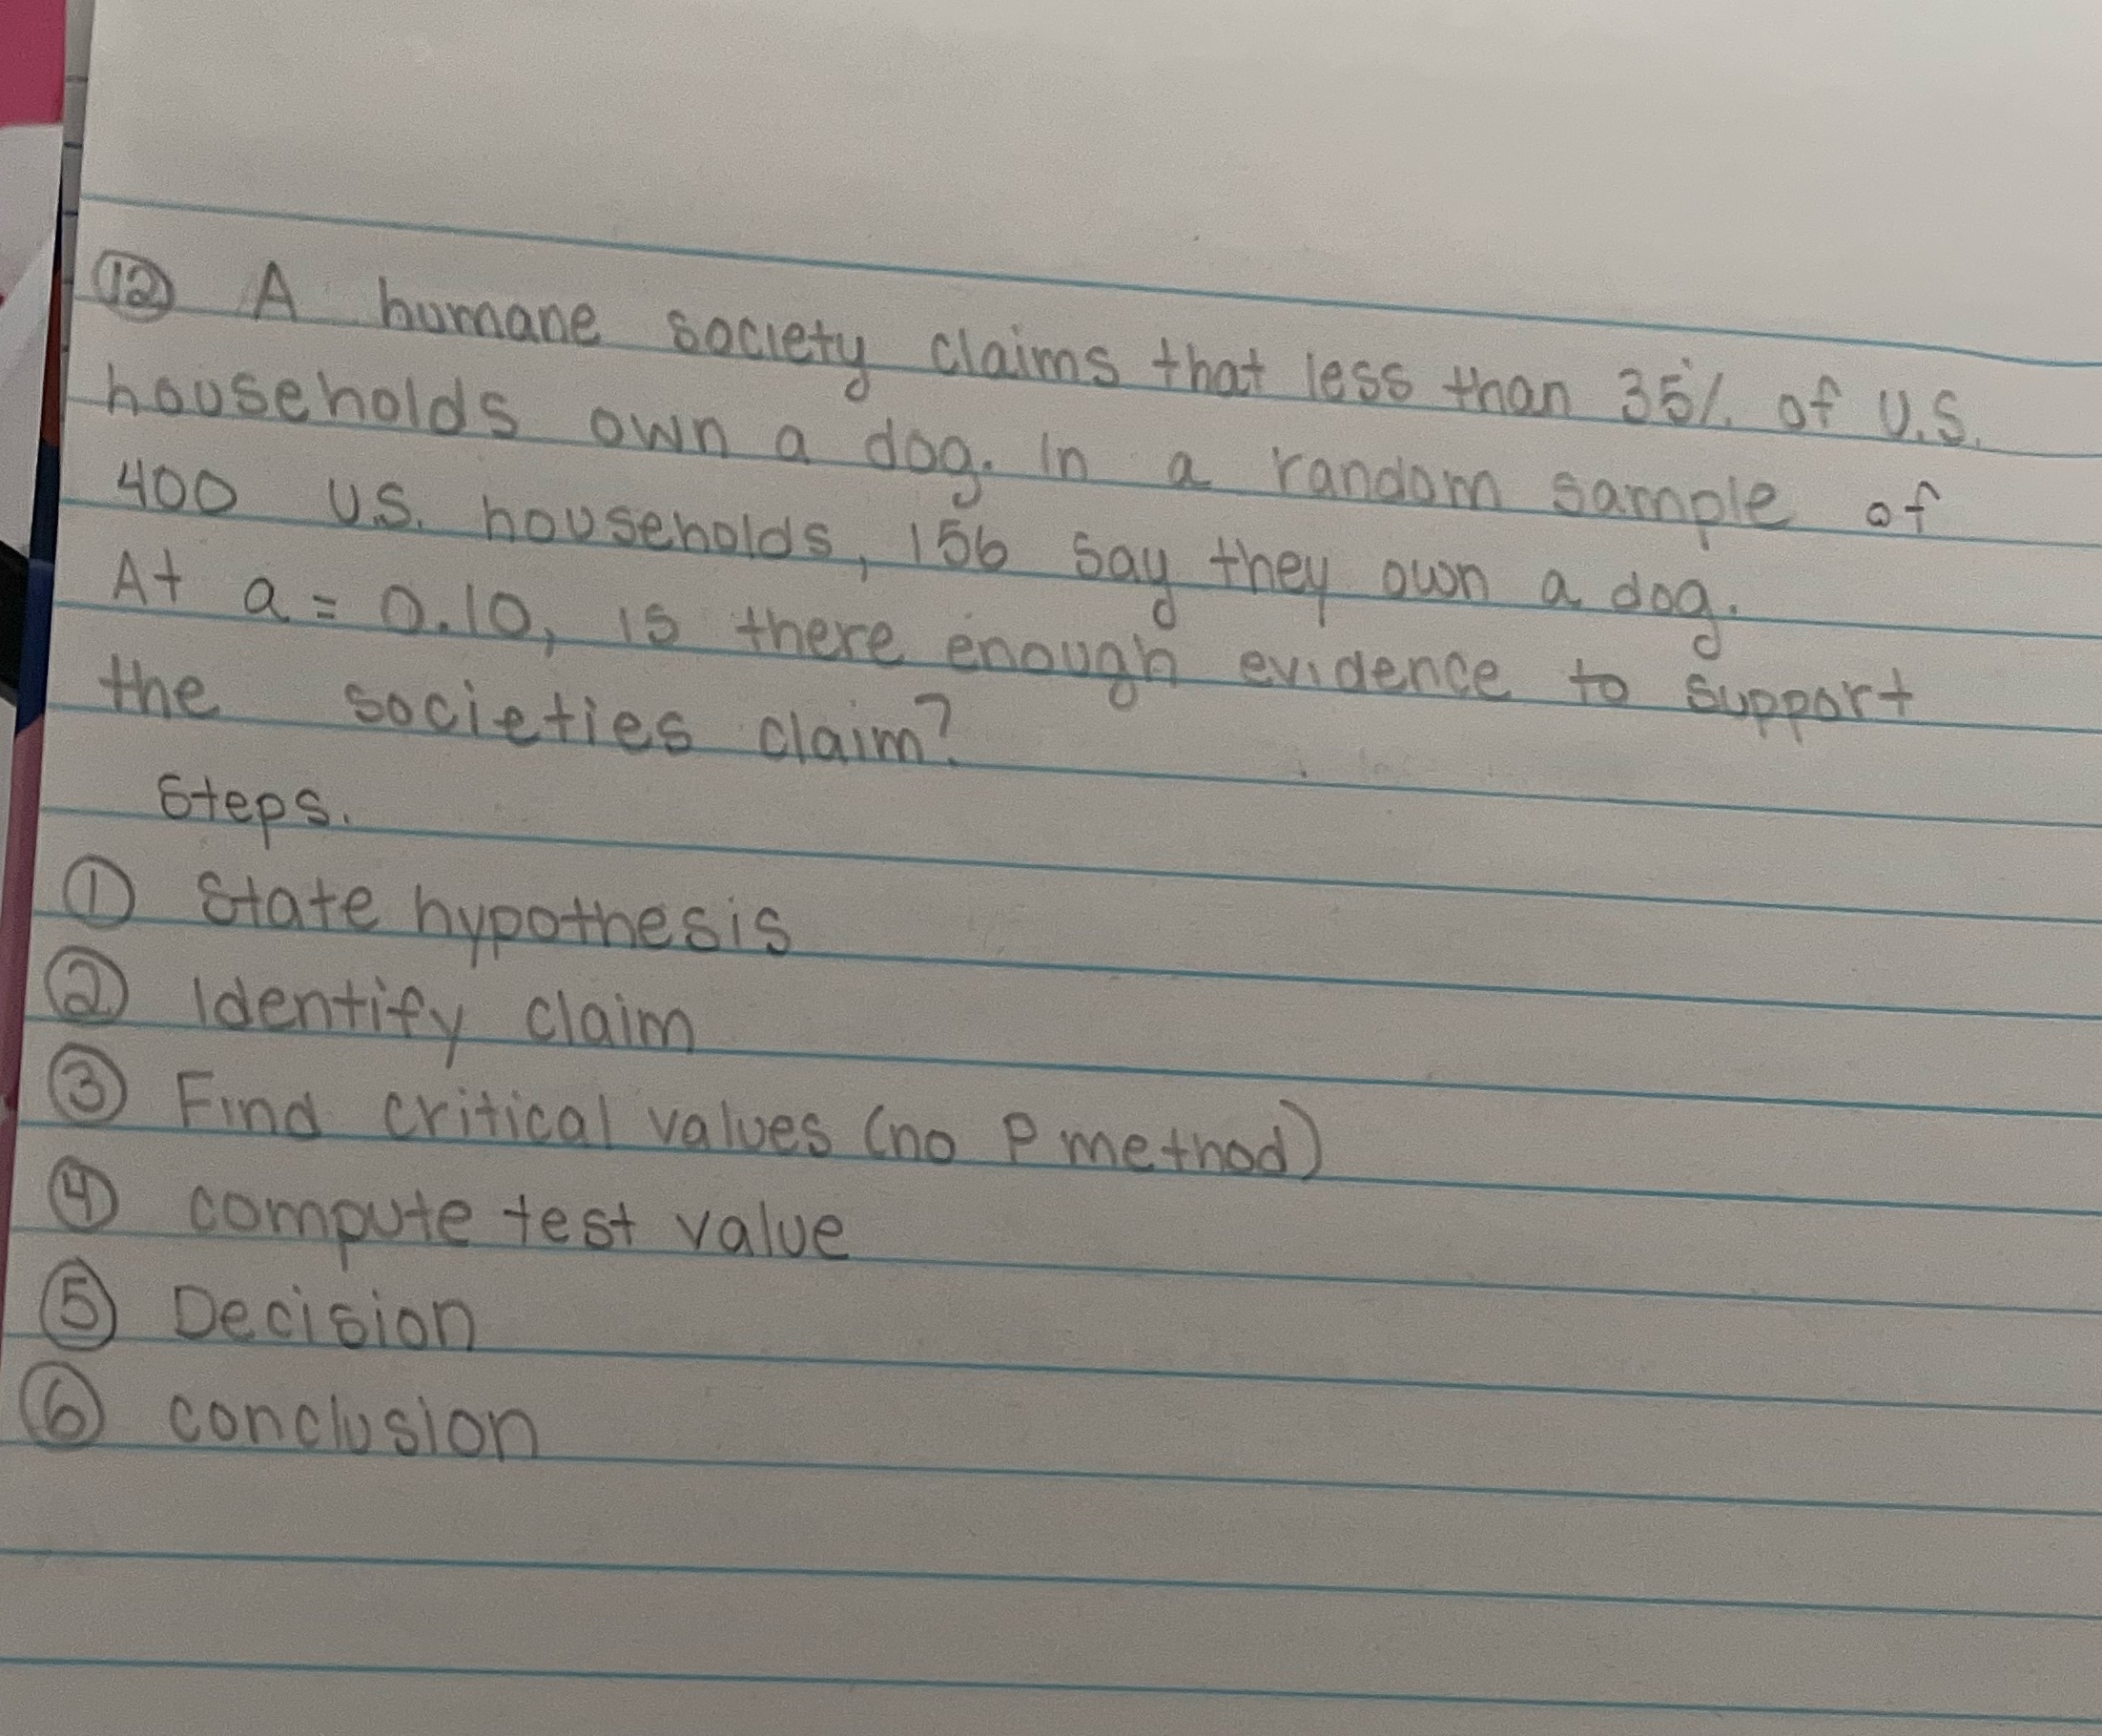 ⑫ A humane society claims that less than 35% of U.S.
households own a dog. In a random sample of
400 U.S. households, 156 say they own a dog.
At a = 0.10, is there enough evidence to support
the societies claim?
Steps.
① State hypothesis
② Identify claim
③ Find critical values (no P method)
④ compute test value
⑤ Decision
⑥ conclusion